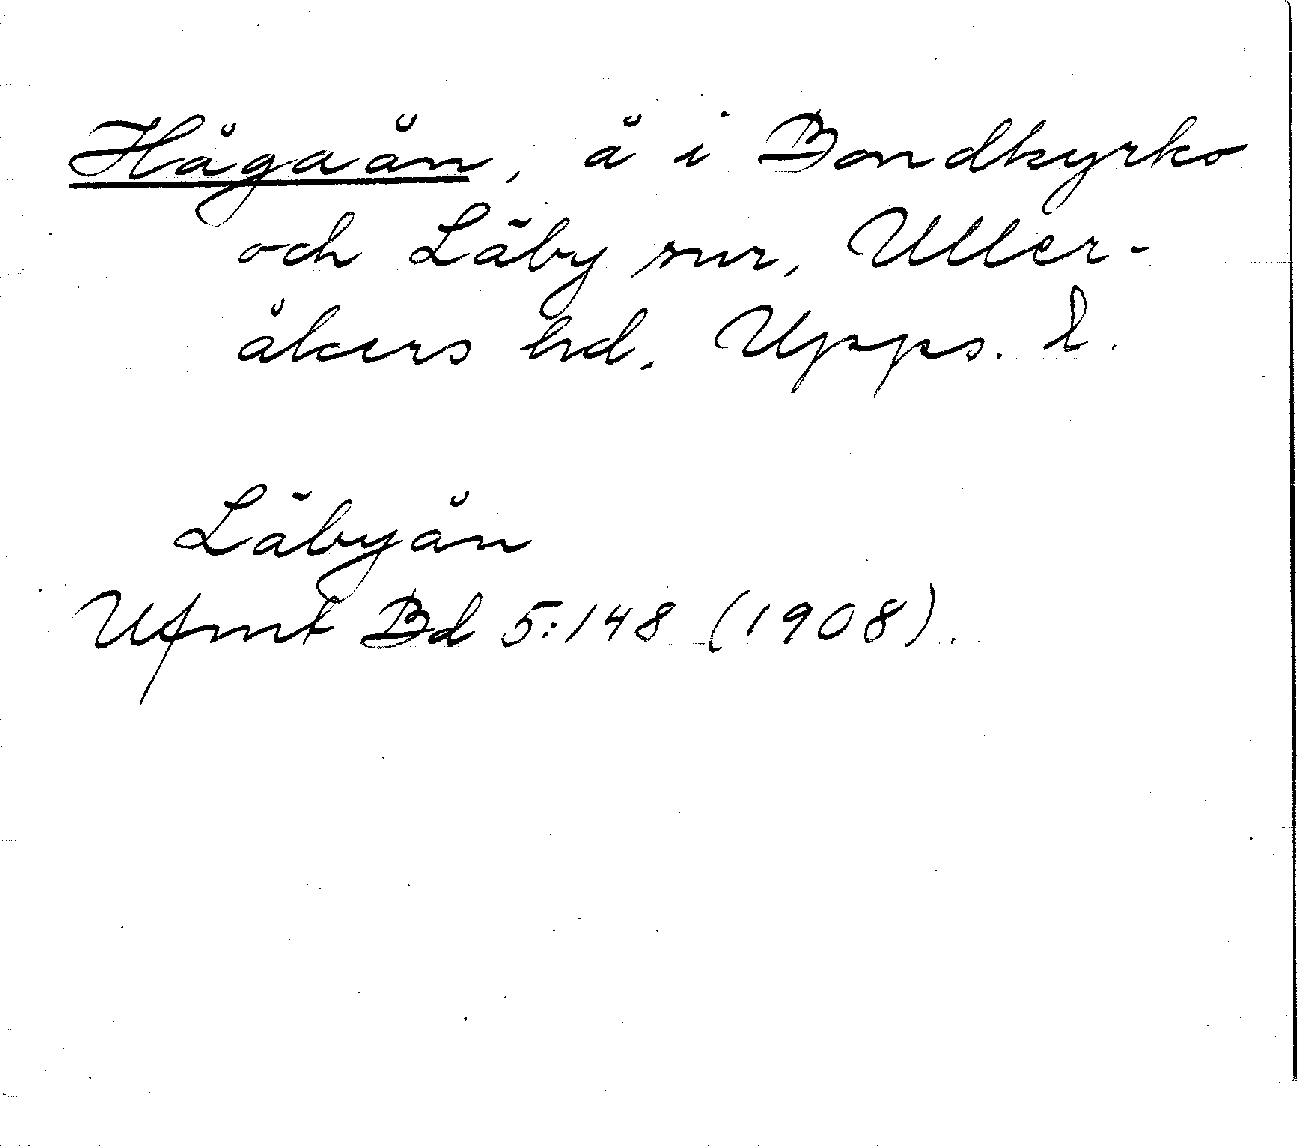 Hågaån, å i Bondkyrko
och Läby snr, Uller-
åkers hd, Upps. l.
Läbyån
Ufmt Bd 5:148 (1908).